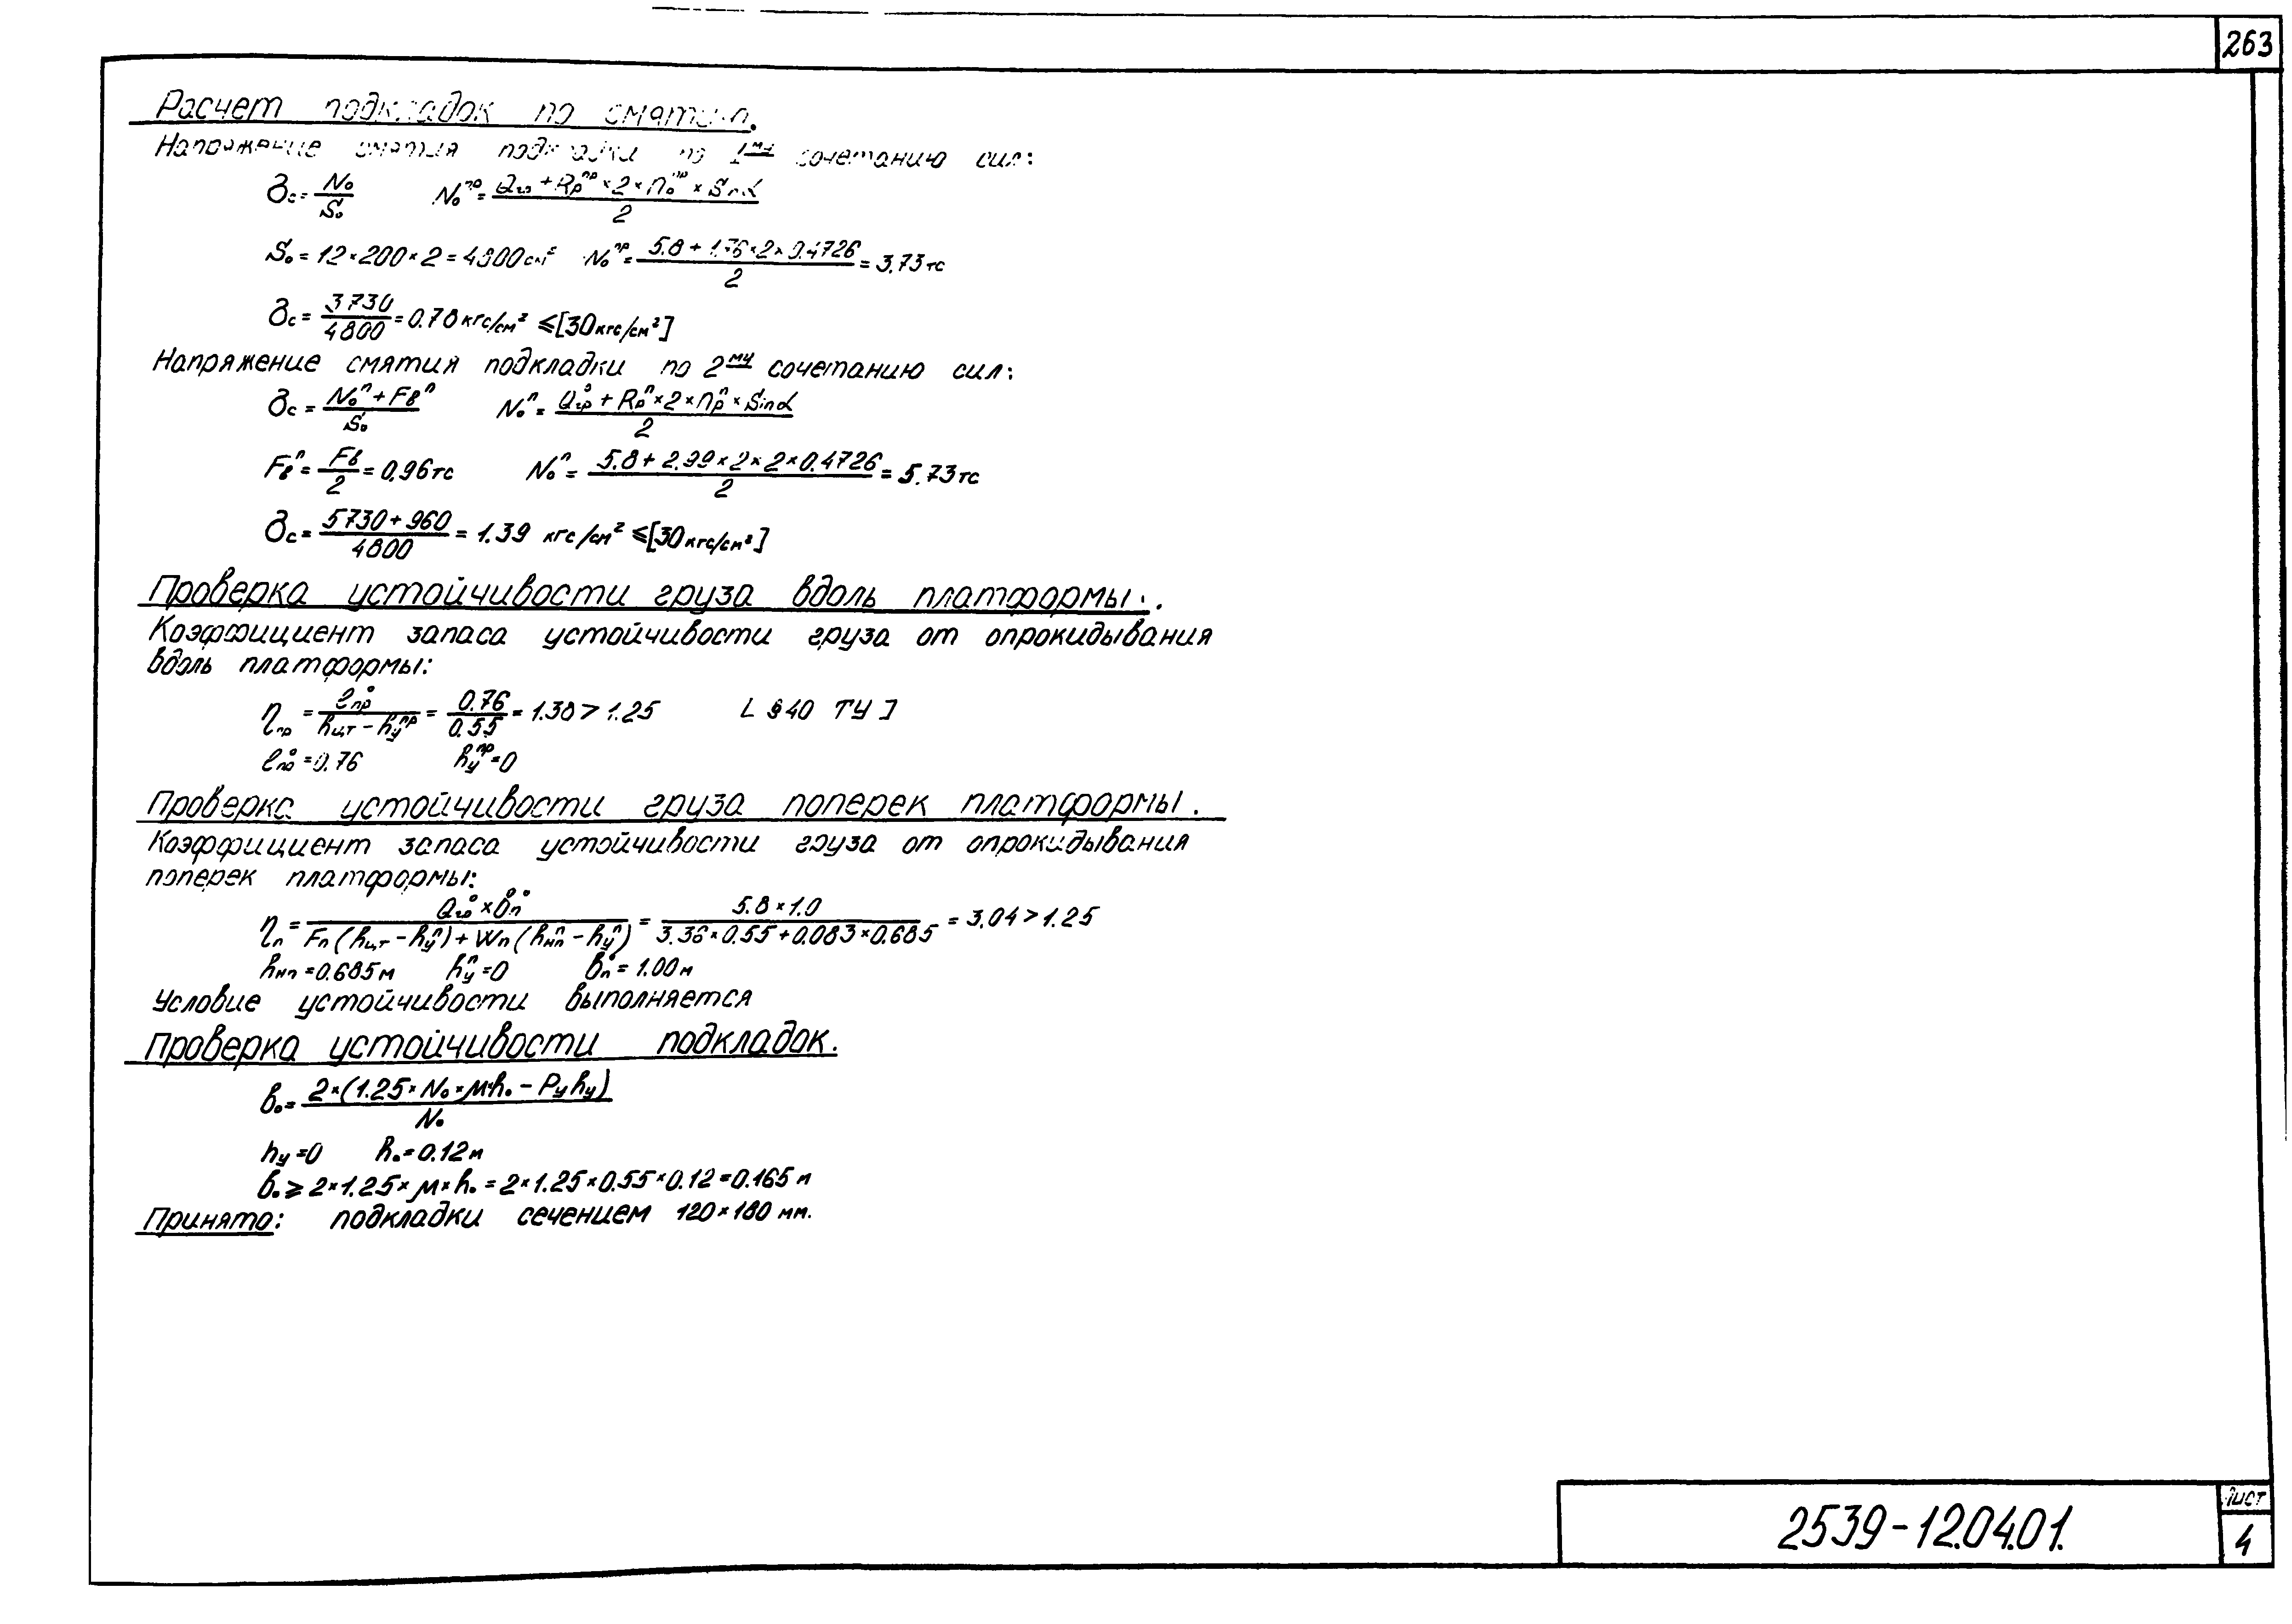 263
Расчет подкладок по смятию.
Напряжение смятия подкладки по 1му сочетанию сил:
σс = N₀/S₀    N₀ᵖᵖ = (Qгр + Rрᵖᵖ × 2 × n₀ᵖᵖ × Sinα)/2
S₀ = 12 × 200 × 2 = 4800 см²    N₀ᵖᵖ = (5.8 + 1.76 × 2 × 0.4726)/2 = 3.73 тс
σс = 3730/4800 = 0.78 кгс/см² ≤ [30 кгс/см²]
Напряжение смятия подкладки по 2му сочетанию сил:
σс = (N₀ⁿ + Fвⁿ)/S₀    N₀ⁿ = (Q°гр + Rрⁿ × 2 × nрⁿ × Sinα)/2
Fвⁿ = Fв/2 = 0.96 тс    N₀ⁿ = (5.8 + 2.99 × 2 × 2 × 0.4726)/2 = 5.73 тс
σс = (5730 + 960)/4800 = 1.39 кгс/см² ≤ [30 кгс/см²]
Проверка устойчивости груза вдоль платформы.
Коэффициент запаса устойчивости груза от опрокидывания
вдоль платформы:
ηпр = ℓ°пр/(hцт − hуᵖᵖ) = 0.76/0.55 = 1.38 > 1.25    [ §40 ТУ ]
ℓ°пр = 0.76    hуᵖᵖ = 0
Проверка устойчивости груза поперек платформы.
Коэффициент запаса устойчивости груза от опрокидывания
поперек платформы:
ηп = (Q°гр × b°п)/(Fп (hцт − hуⁿ) + Wп (hⁿнп − hуⁿ)) = (5.8 × 1.0)/(3.36 × 0.55 + 0.083 × 0.685) = 3.04 > 1.25
hнп = 0.685 м    hуⁿ = 0    b°п = 1.00 м
Условие устойчивости выполняется
Проверка устойчивости подкладок.
b₀ = 2 × (1.25 × N₀ × μ × h₀ − Pу hу)/N₀
hу = 0    h₀ = 0.12 м
b₀ ≥ 2 × 1.25 × μ × h₀ = 2 × 1.25 × 0.55 × 0.12 = 0.165 м
Принято: подкладки сечением 120 × 180 мм.
2539-12.04.01.
Лист
4